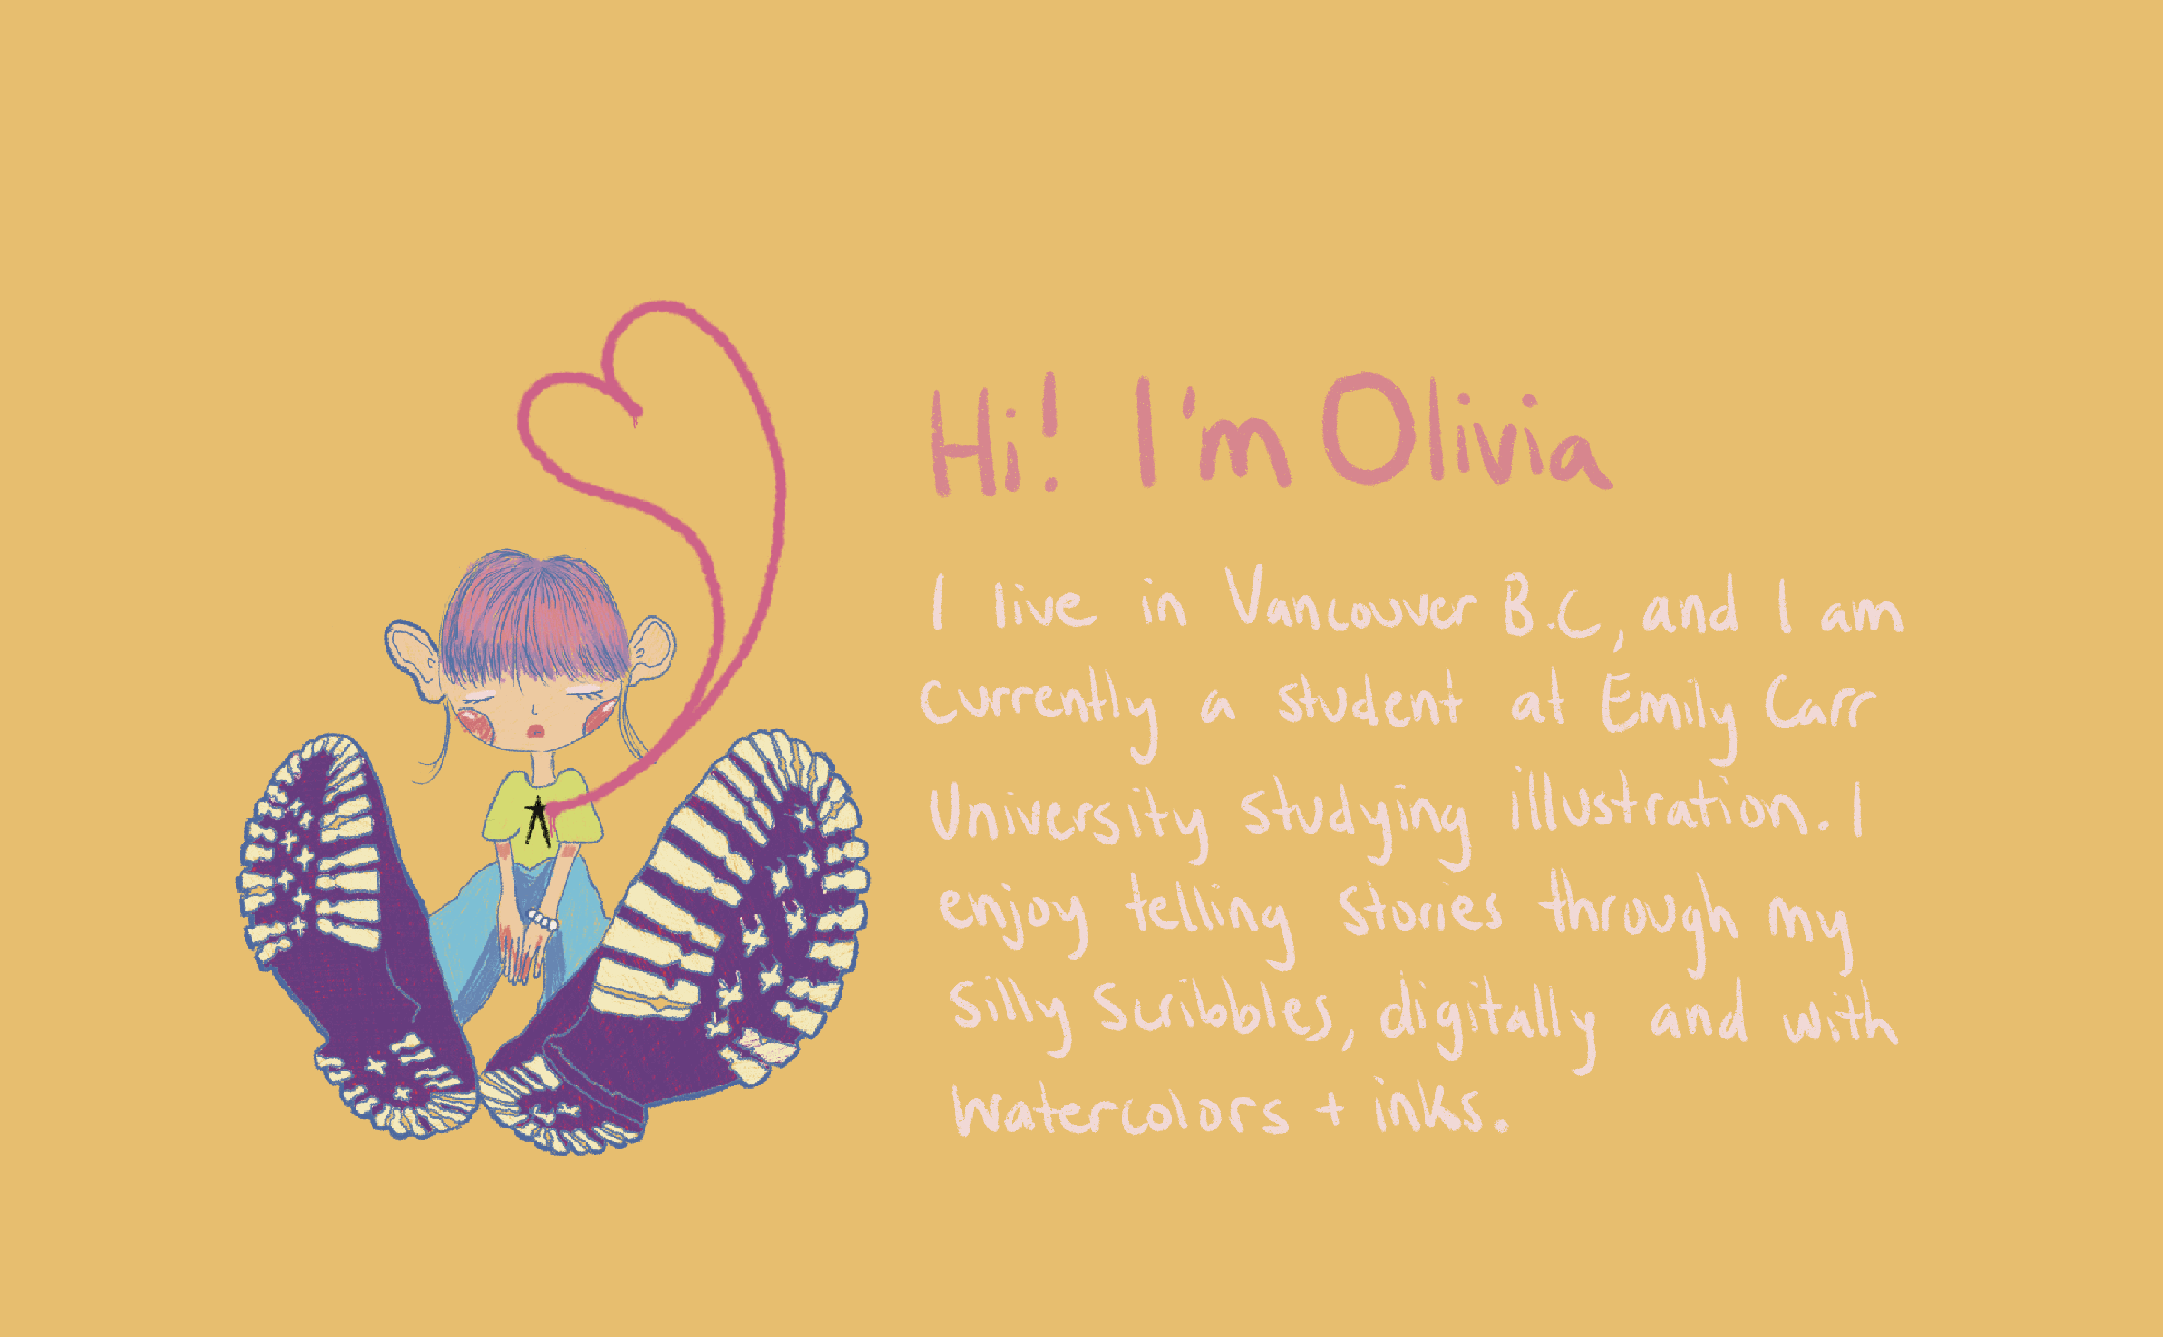 Hi! I'm Olivia
I live in Vancouver B.C, and I am
currently a student at Emily Carr
University studying illustration. I
enjoy telling stories through my
silly scribbles, digitally and with
watercolors + inks.